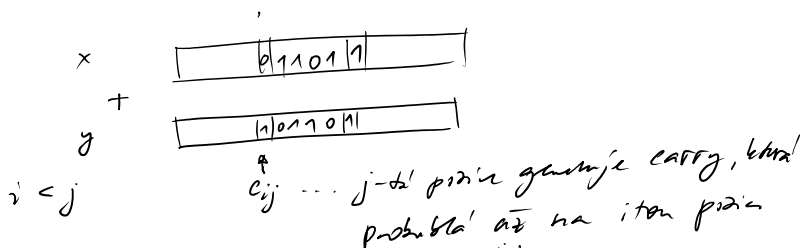 x |0|1101|1|
+
y |1|0110|1|
i < j c_ij ... j-tá pozice generuje carry, která
probublá až na itou pozici